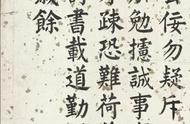 佞勿疑斥
勉攄誠事
疎恐難荷
書載道勤
餘